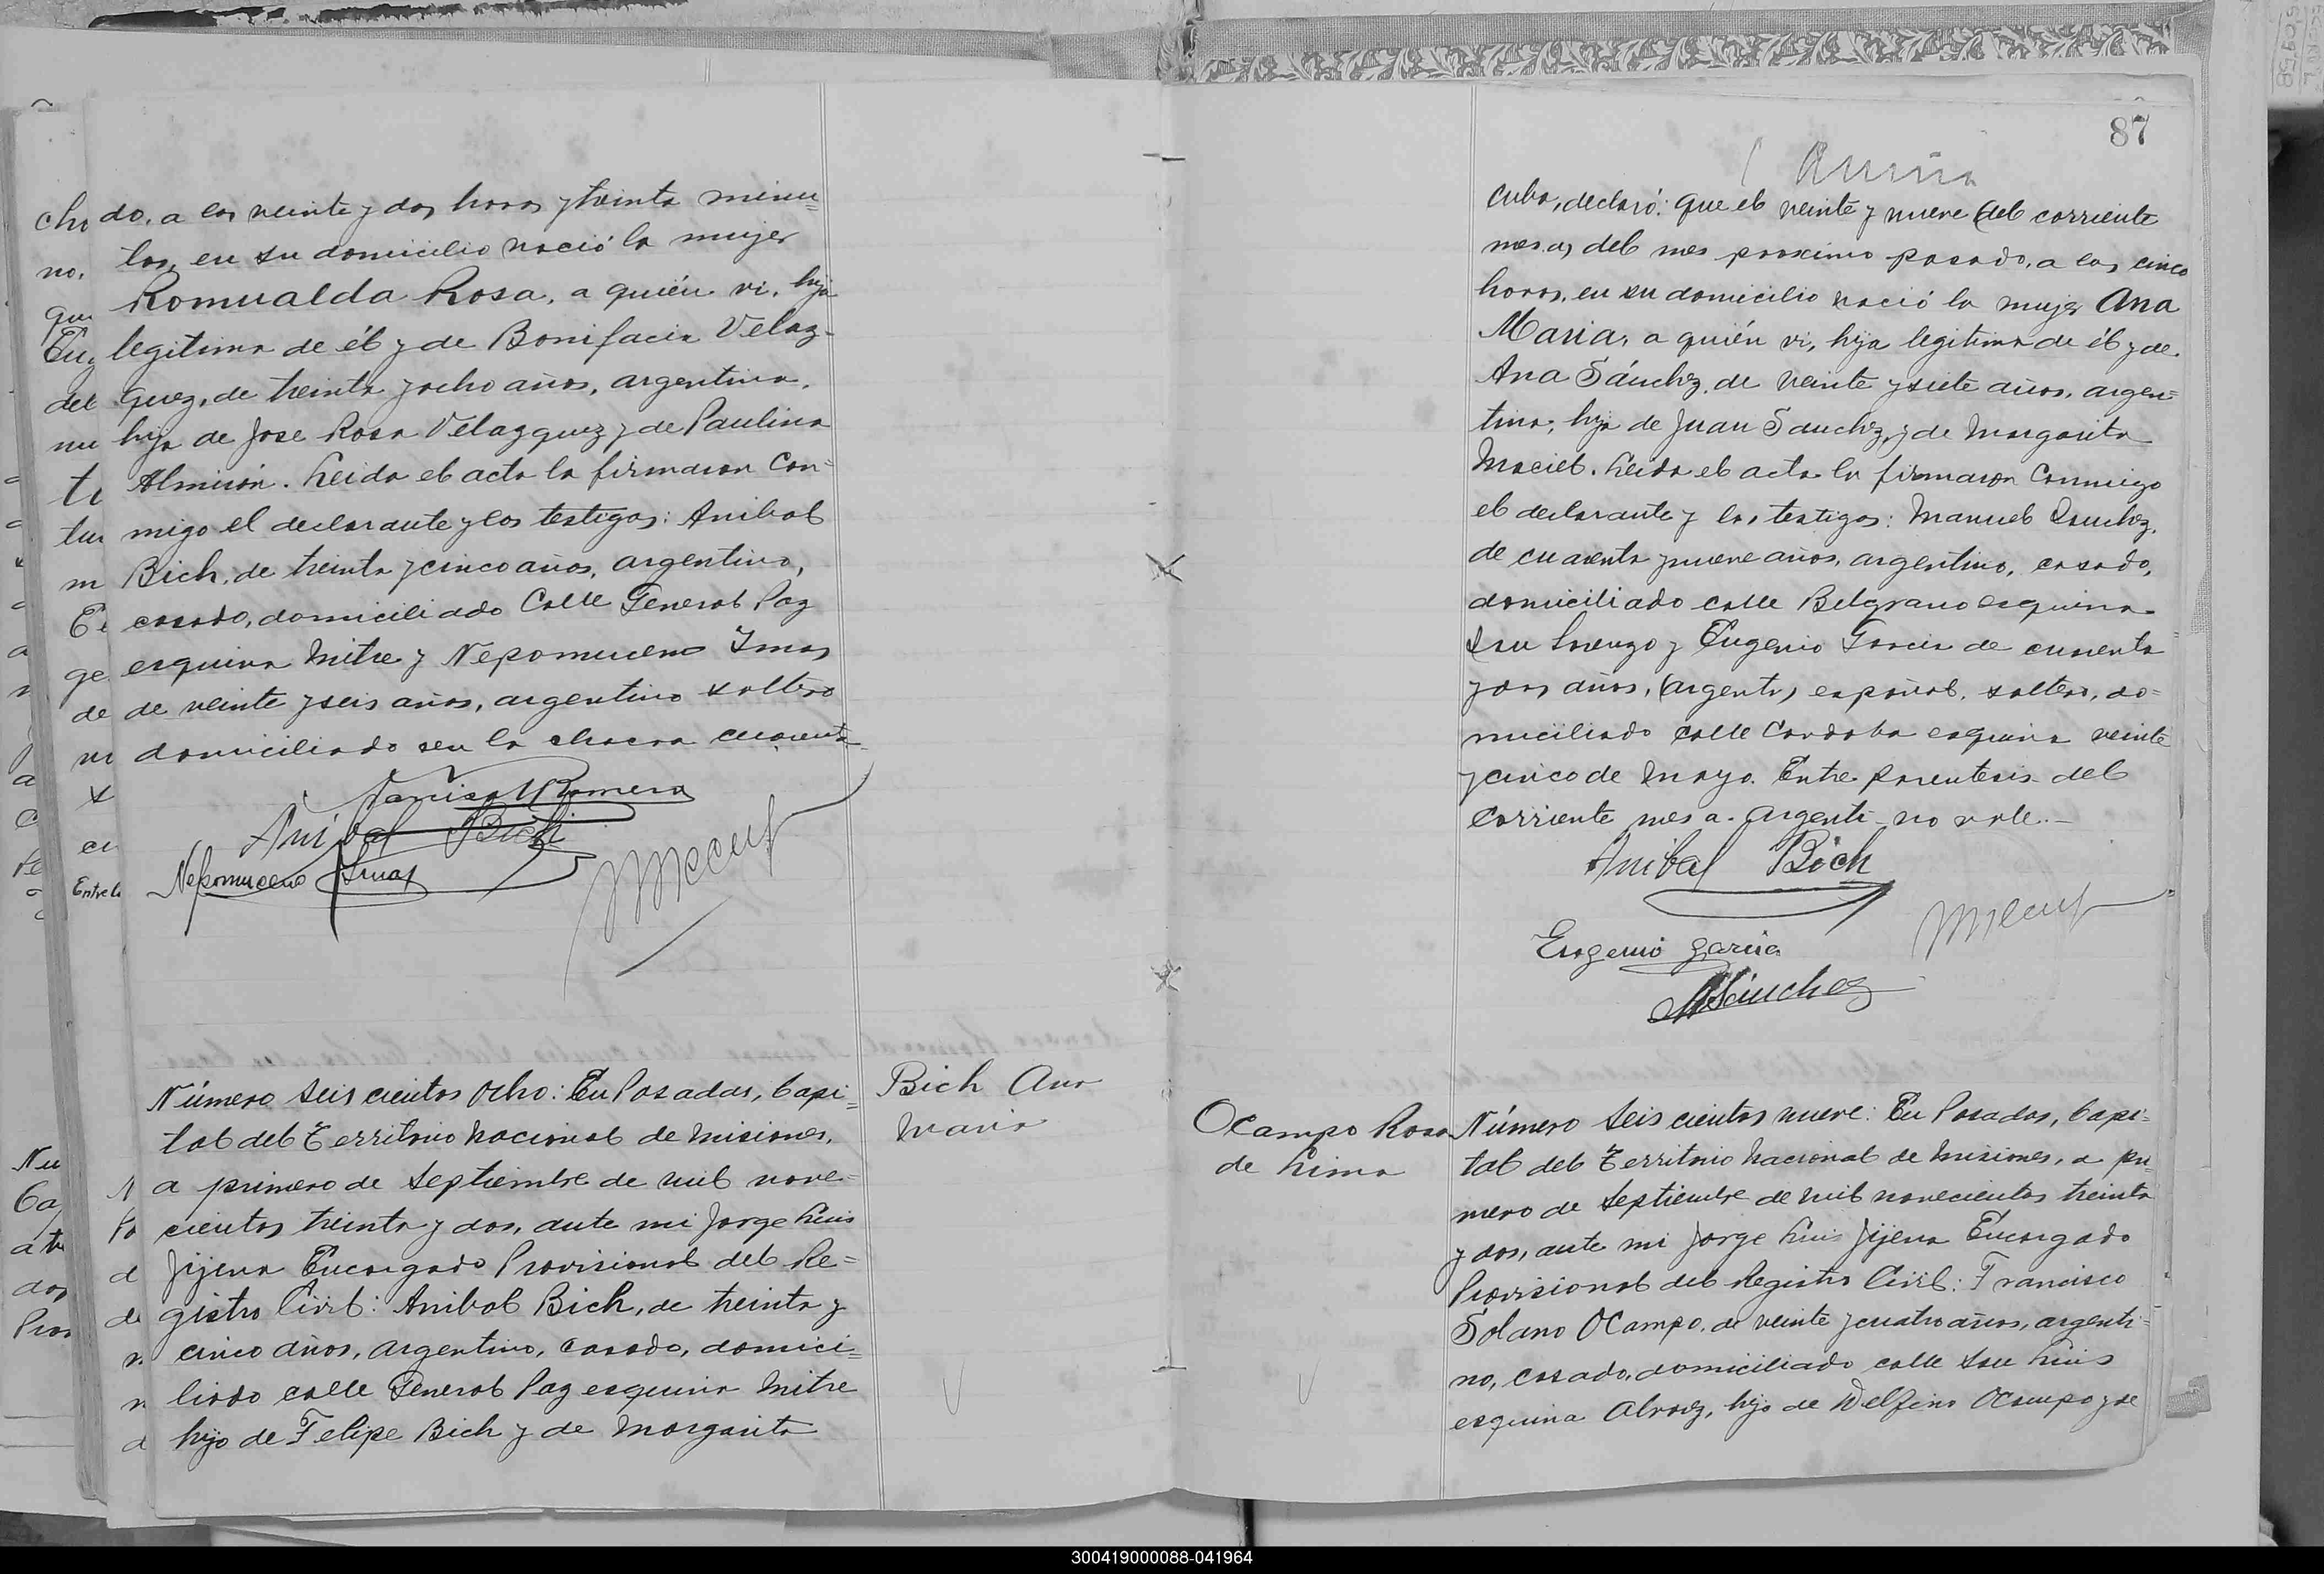 do, a las veinte y dos horas y treinta minu=
tos, en su domicilio nació la mujer
Romualda Rosa, a quién vi, hija
legitima de él y de Bonifacia Velaz-
quez, de treinta y ocho años, argentina,
hija de Jose Rosa Velazquez y de Paulina
Almirón. Leida el acta la firmaron con=
migo el declarante y los testigos: Anibal
Bich, de treinta y cinco años, argentino,
casado, domiciliado Calle General Paz
esquina Mitre y Nepomuceno Imas
de veinte y seis años, argentino soltero
domiciliado en la chacra cuarenta
Romero
Anibal Bich
Nepomuceno Imas
Número Seis cientos Ocho: En Posadas, Capi=
tal del Territorio Nacional de Misiones,
a primero de Septiembre de mil nove=
cientos treinta y dos, ante mi Jorge Luis
Jijena Encargado Provisional del Re=
gistro Civil: Anibal Bich, de treinta y
cinco años, argentino, casado, domici=
liado calle General Paz esquina Mitre
hijo de Felipe Bich y de Margarita
Bich Ana
Maria
87
Cuba, declaró: que el veinte y nueve (del corriente
mes a) del mes proximo pasado, a las cinco
horas, en su domicilio nació la mujer Ana
Maria, a quién vi, hija legitima de él y de
Ana Sánchez, de veinte y siete años, argen=
tina, hija de Juan Sanchez y de Margarita
Maciel. Leida el acta la firmaron conmigo
el declarante y los testigos: Manuel Sanchez,
de cuarenta y nueve años, argentino, casado,
domiciliado calle Belgrano esquina
San Lorenzo y Eugenio Garcia de cuarenta
y dos años, (argenti) español, soltero, do=
miciliado calle Cordoba esquina veinte
y cinco de Mayo. Entre parentesis del
corriente mes a - argenti - no vale.-
Anibal Bich
Eugenio Garcia
MSánchez
Ocampo Rosa
de Lima
Número Seis cientos nueve: En Posadas, Capi=
tal del Territorio Nacional de Misiones, a pri
mero de Septiembre de mil novecientos treinta
y dos, ante mi Jorge Luis Jijena Encargado
Provisional del Registro Civil: Francisco
Solano Ocampo, de veinte y cuatro años, argenti=
no, casado, domiciliado calle San Luis
esquina Alvarez, hijo de Delfino Ocampo y de
300419000088-041964